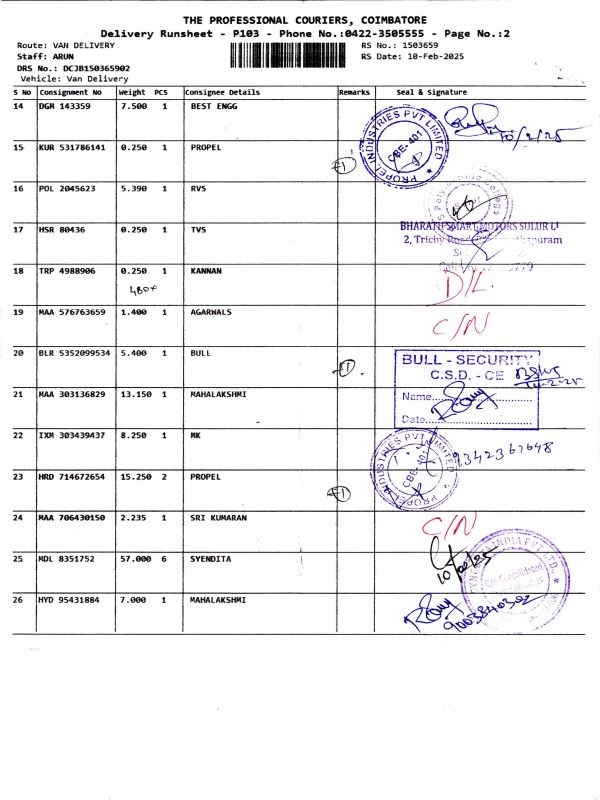 THE PROFESSIONAL COURIERS, COIMBATORE
Delivery Runsheet - P103 - Phone No.:0422-3505555 - Page No.:2
Route: VAN DELIVERY RS No.: 1503659
Staff: ARUN RS Date: 10-Feb-2025
DRS No.: DCJB150365902
Vehicle: Van Delivery
S No Consignment No Weight PCS Consignee Details Remarks Seal & Signature
14 DGM 143359 7.500 1 BEST ENGG
10/2/25
PROPEL INDUSTRIES PVT LIMITED
CBE-401
15 KUR 531786141 0.250 1 PROPEL +1
16 POL 2045623 5.390 1 RVS
17 HSR 80436 0.250 1 TVS
BHARATH SMART MOTORS SULUR
2, Trichy Road
18 TRP 4988906 0.250 1 KANNAN D/L
480x
19 MAA 576763659 1.400 1 AGARWALS C/N
20 BLR 5352099534 5.400 1 BULL +1
BULL - SECURITY
C.S.D. - CE
Name
Date
21 MAA 303136829 13.150 1 MAHALAKSHMI
22 IXM 303439437 8.250 1 MK 9342367648
PROPEL INDUSTRIES PVT LIMITED
CBE-401
23 HRD 714672654 15.250 2 PROPEL +1
24 MAA 706430150 2.235 1 SRI KUMARAN C/N
25 MDL 8351752 57.000 6 SYENDITA
10/02/25
INDIA PVT LTD.
26 HYD 95431884 7.000 1 MAHALAKSHMI
9003840302